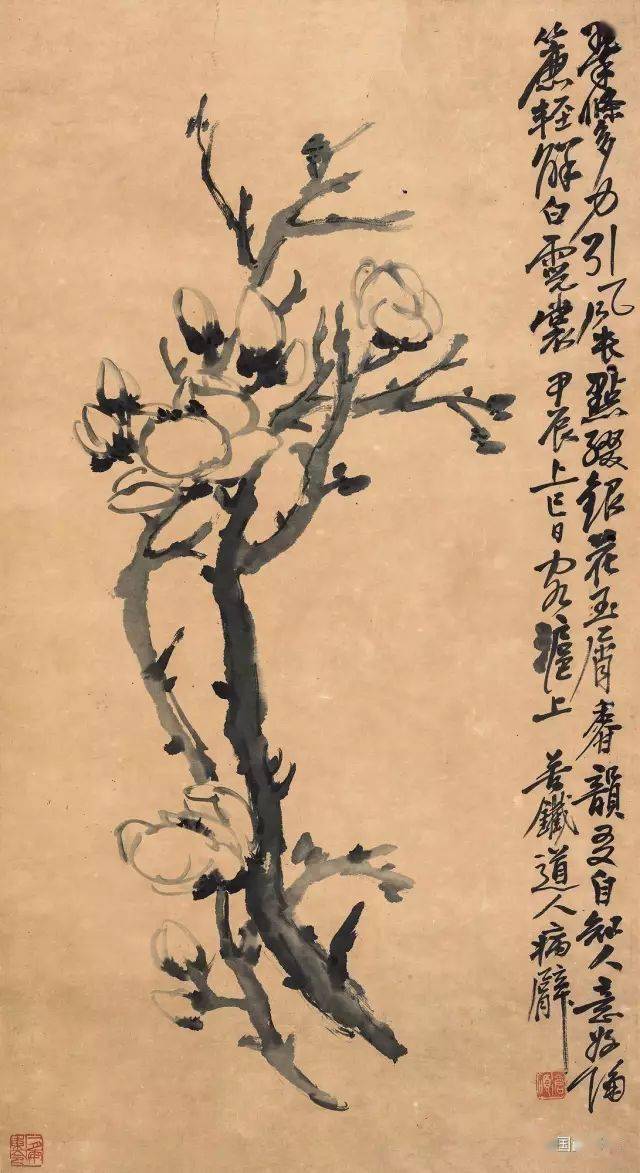 翠條多力引風長點綴銀花玉屑香韻友自知人意好隔
簾輕解白霓裳 甲辰上巳日滬上 苦鐵道人病臂
倉碩
国